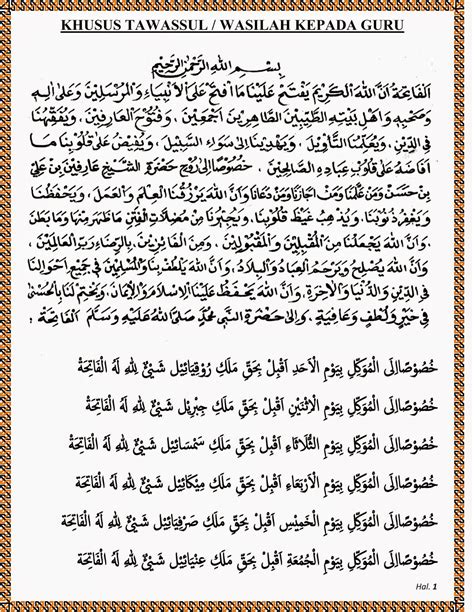 KHUSUS TAWASSUL / WASILAH KEPADA GURU
بِسْمِ اللهِ الرَّحْمٰنِ الرَّحِيْمِ
اَلْفَاتِحَةَ اَنَّ اللهَ الْكَرِيْمَ يَفْتَحُ عَلَيْنَا مَا فَتَحَ عَلَى الْاَنْبِيَاءِ وَالْمُرْسَلِيْنَ وَعَلَى اٰلِهِ
وَصَحْبِهِ وَاَهْلِ بَيْتِهِ الطَّيِّبِيْنَ الطَّاهِرِيْنَ اَجْمَعِيْنَ ، وَفُتُوْحَ الْعَارِفِيْنَ وَيُفَقِّهُنَا
فِي الدِّيْنِ ، وَيُعَلِّمُنَا التَّأْوِيْلَ ، وَيَهْدِيْنَا اِلَى سَوَاءِ السَّبِيْلِ ، وَيُفِيْضُ عَلَى قُلُوْبِنَا مَا
اَفَاضَهُ عَلَى قُلُوْبِ عِبَادِهِ الصَّالِحِيْنَ ، خُصُوْصًا اِلَى رُوْحِ حَضْرَةِ الشَّيْخِ عَارِفِيْنَ بْنِ عَلِيّ
بْنِ حَسَنْ وَمَنْ اَجَازَنَا وَمَنْ دَعَانَا وَاَنَّ اللهَ يَرْزُقُنَا الْعِلْمَ وَالْعَمَلَ ، وَيَحْفَظُنَا
وَيَغْفِرُ ذُنُوْبَنَا ، وَيُذْهِبُ غَيْظَ قُلُوْبِنَا ، وَيُجِيْرُنَا مِنْ مُضِلَّاتِ الْفِتَنِ مَا ظَهَرَ مِنْهَا وَمَا بَطَنَ
وَاَنَّ اللهَ يَجْعَلُنَا مِنَ الْمُقْبِلِيْنَ وَالْمَقْبُوْلِيْنَ ، وَمِنَ الْفَائِزِيْنَ ، بِالرِّضَاءِ رَبِّ الْعَالَمِيْنَ ،
وَاَنَّ اللهَ يُصْلِحُ وَيَرْحَمُ الْعِبَادَ وَالْبِلَادَ ، وَاَنَّ اللهَ يَلْطُفُ بِنَا وَالْمُسْلِمِيْنَ فِي جَمِيْعِ اَحْوَالِنَا
فِي الدِّيْنِ وَالدُّنْيَا وَالْاٰخِرَةِ ، وَاَنَّ اللهَ يَحْفَظُ عَلَيْنَا الْاِسْلَامَ وَالْاِيْمَانَ ، وَيَخْتِمُ لَنَا بِالْحُسْنٰى
فِي خَيْرٍ وَلُطْفٍ وَعَافِيَةٍ ، وَاِلَى حَضْرَةِ النَّبِي مُحَمَّدٍ صَلَّى اللهُ عَلَيْهِ وَسَلَّمَ اَلْفَاتِحَةَ :
خُصُوْصًا اِلَى الْمُوَكِّلِ بِيَوْمِ الْاَحَدِ اَقْبِلْ بِحَقِّ مَلَكِ رُوْقِيَائِيْل شَيْئٌ لِلّٰهِ لَهُ الْفَاتِحَةُ
خُصُوْصًا اِلَى الْمُوَكِّلِ بِيَوْمِ الْاِثْنَيْنِ اَقْبِلْ بِحَقِّ مَلَكِ جِبْرِيْل شَيْئٌ لِلّٰهِ لَهُ الْفَاتِحَةُ
خُصُوْصًا اِلَى الْمُوَكِّلِ بِيَوْمِ الثُّلَاثَاءِ اَقْبِلْ بِحَقِّ مَلَكِ سَمْسَمَائِيْل شَيْئٌ لِلّٰهِ لَهُ الْفَاتِحَةُ
خُصُوْصًا اِلَى الْمُوَكِّلِ بِيَوْمِ الْاَرْبِعَاءِ اَقْبِلْ بِحَقِّ مَلَكِ مِيْكَائِيْل شَيْئٌ لِلّٰهِ لَهُ الْفَاتِحَةُ
خُصُوْصًا اِلَى الْمُوَكِّلِ بِيَوْمِ الْخَمِيْسِ اَقْبِلْ بِحَقِّ مَلَكِ صَرْفِيَائِيْل شَيْئٌ لِلّٰهِ لَهُ الْفَاتِحَةُ
خُصُوْصًا اِلَى الْمُوَكِّلِ بِيَوْمِ الْجُمُعَةِ اَقْبِلْ بِحَقِّ مَلَكِ عِنْيَائِيْل شَيْئٌ لِلّٰهِ لَهُ الْفَاتِحَةُ
Hal. 1